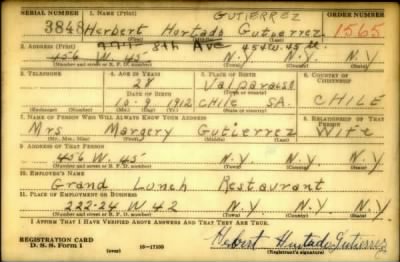 SERIAL NUMBER 1. NAME (Print) GUTIERREZ ORDER NUMBER
3848 Herbert Hurtado Gutierrez 1565
2. ADDRESS (Print) 8th Ave 454 W. 45 St.
456 W. 45 N.Y. N.Y. N.Y.
(Number and street or R. F. D. number) (Town) (County) (State)
3. TELEPHONE 4. AGE IN YEARS 5. PLACE OF BIRTH 6. COUNTRY OF CITIZENSHIP
28 Valparaiso
DATE OF BIRTH (Town or county)
10-9 1912 CHILE SA. CHILE
(Exchange) (Number) (Mo.) (Day) (Yr.) (State or country)
7. NAME OF PERSON WHO WILL ALWAYS KNOW YOUR ADDRESS 8. RELATIONSHIP OF THAT PERSON
Mrs Margery Gutierrez Wife
(Mr., Mrs., Miss) (First) (Middle) (Last)
9. ADDRESS OF THAT PERSON
456 W. 45 N.Y. N.Y. N.Y.
(Number and street or R. F. D. number) (Town) (County) (State)
10. EMPLOYER'S NAME
Grand Lunch Restaurant
11. PLACE OF EMPLOYMENT OR BUSINESS
222-24 W 42 N.Y. N.Y. N.Y.
(Number and street or R. F. D. number) (Town) (County) (State)
I AFFIRM THAT I HAVE VERIFIED ABOVE ANSWERS AND THAT THEY ARE TRUE.
REGISTRATION CARD Hebert Hurtado Gutierrez
D. S. S. Form 1 (over) 16-17105 (Registrant's signature)